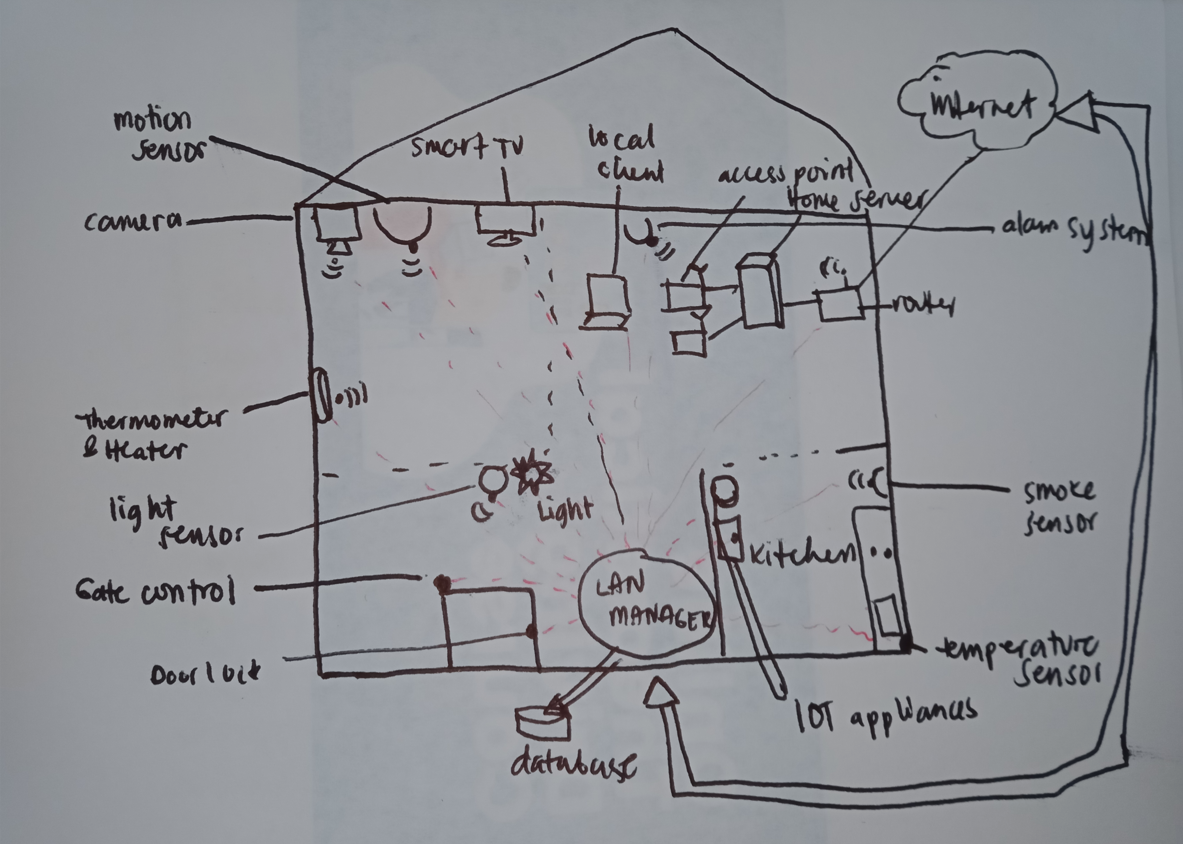 motion
sensor
smart TV
local
client
access point
Home server
internet
camera
alam system
router
thermometer
& Heater
light
sensor
Light
smoke
sensor
kitchen
Gate control
LAN
MANAGER
Door lock
temperature
sensor
IOT appliances
database